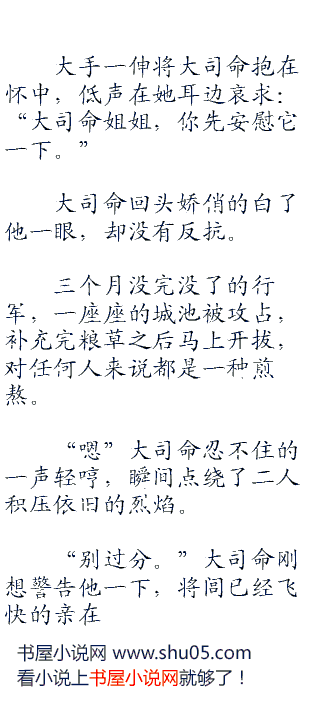 大手一伸将大司命抱在
怀中，低声在她耳边哀求：
“大司命姐姐，你先安慰它
一下。”
大司命回头娇俏的白了
他一眼，却没有反抗。
三个月没完没了的行
军，一座座的城池被攻占，
补充完粮草之后马上开拔，
对任何人来说都是一种煎
熬。
“嗯”大司命忍不住的
一声轻哼，瞬间点绕了二人
积压依旧的烈焰。
“别过分。”大司命刚
想警告他一下，将闾已经飞
快的亲在
书屋小说网 www.shu05.com
看小说上书屋小说网就够了！